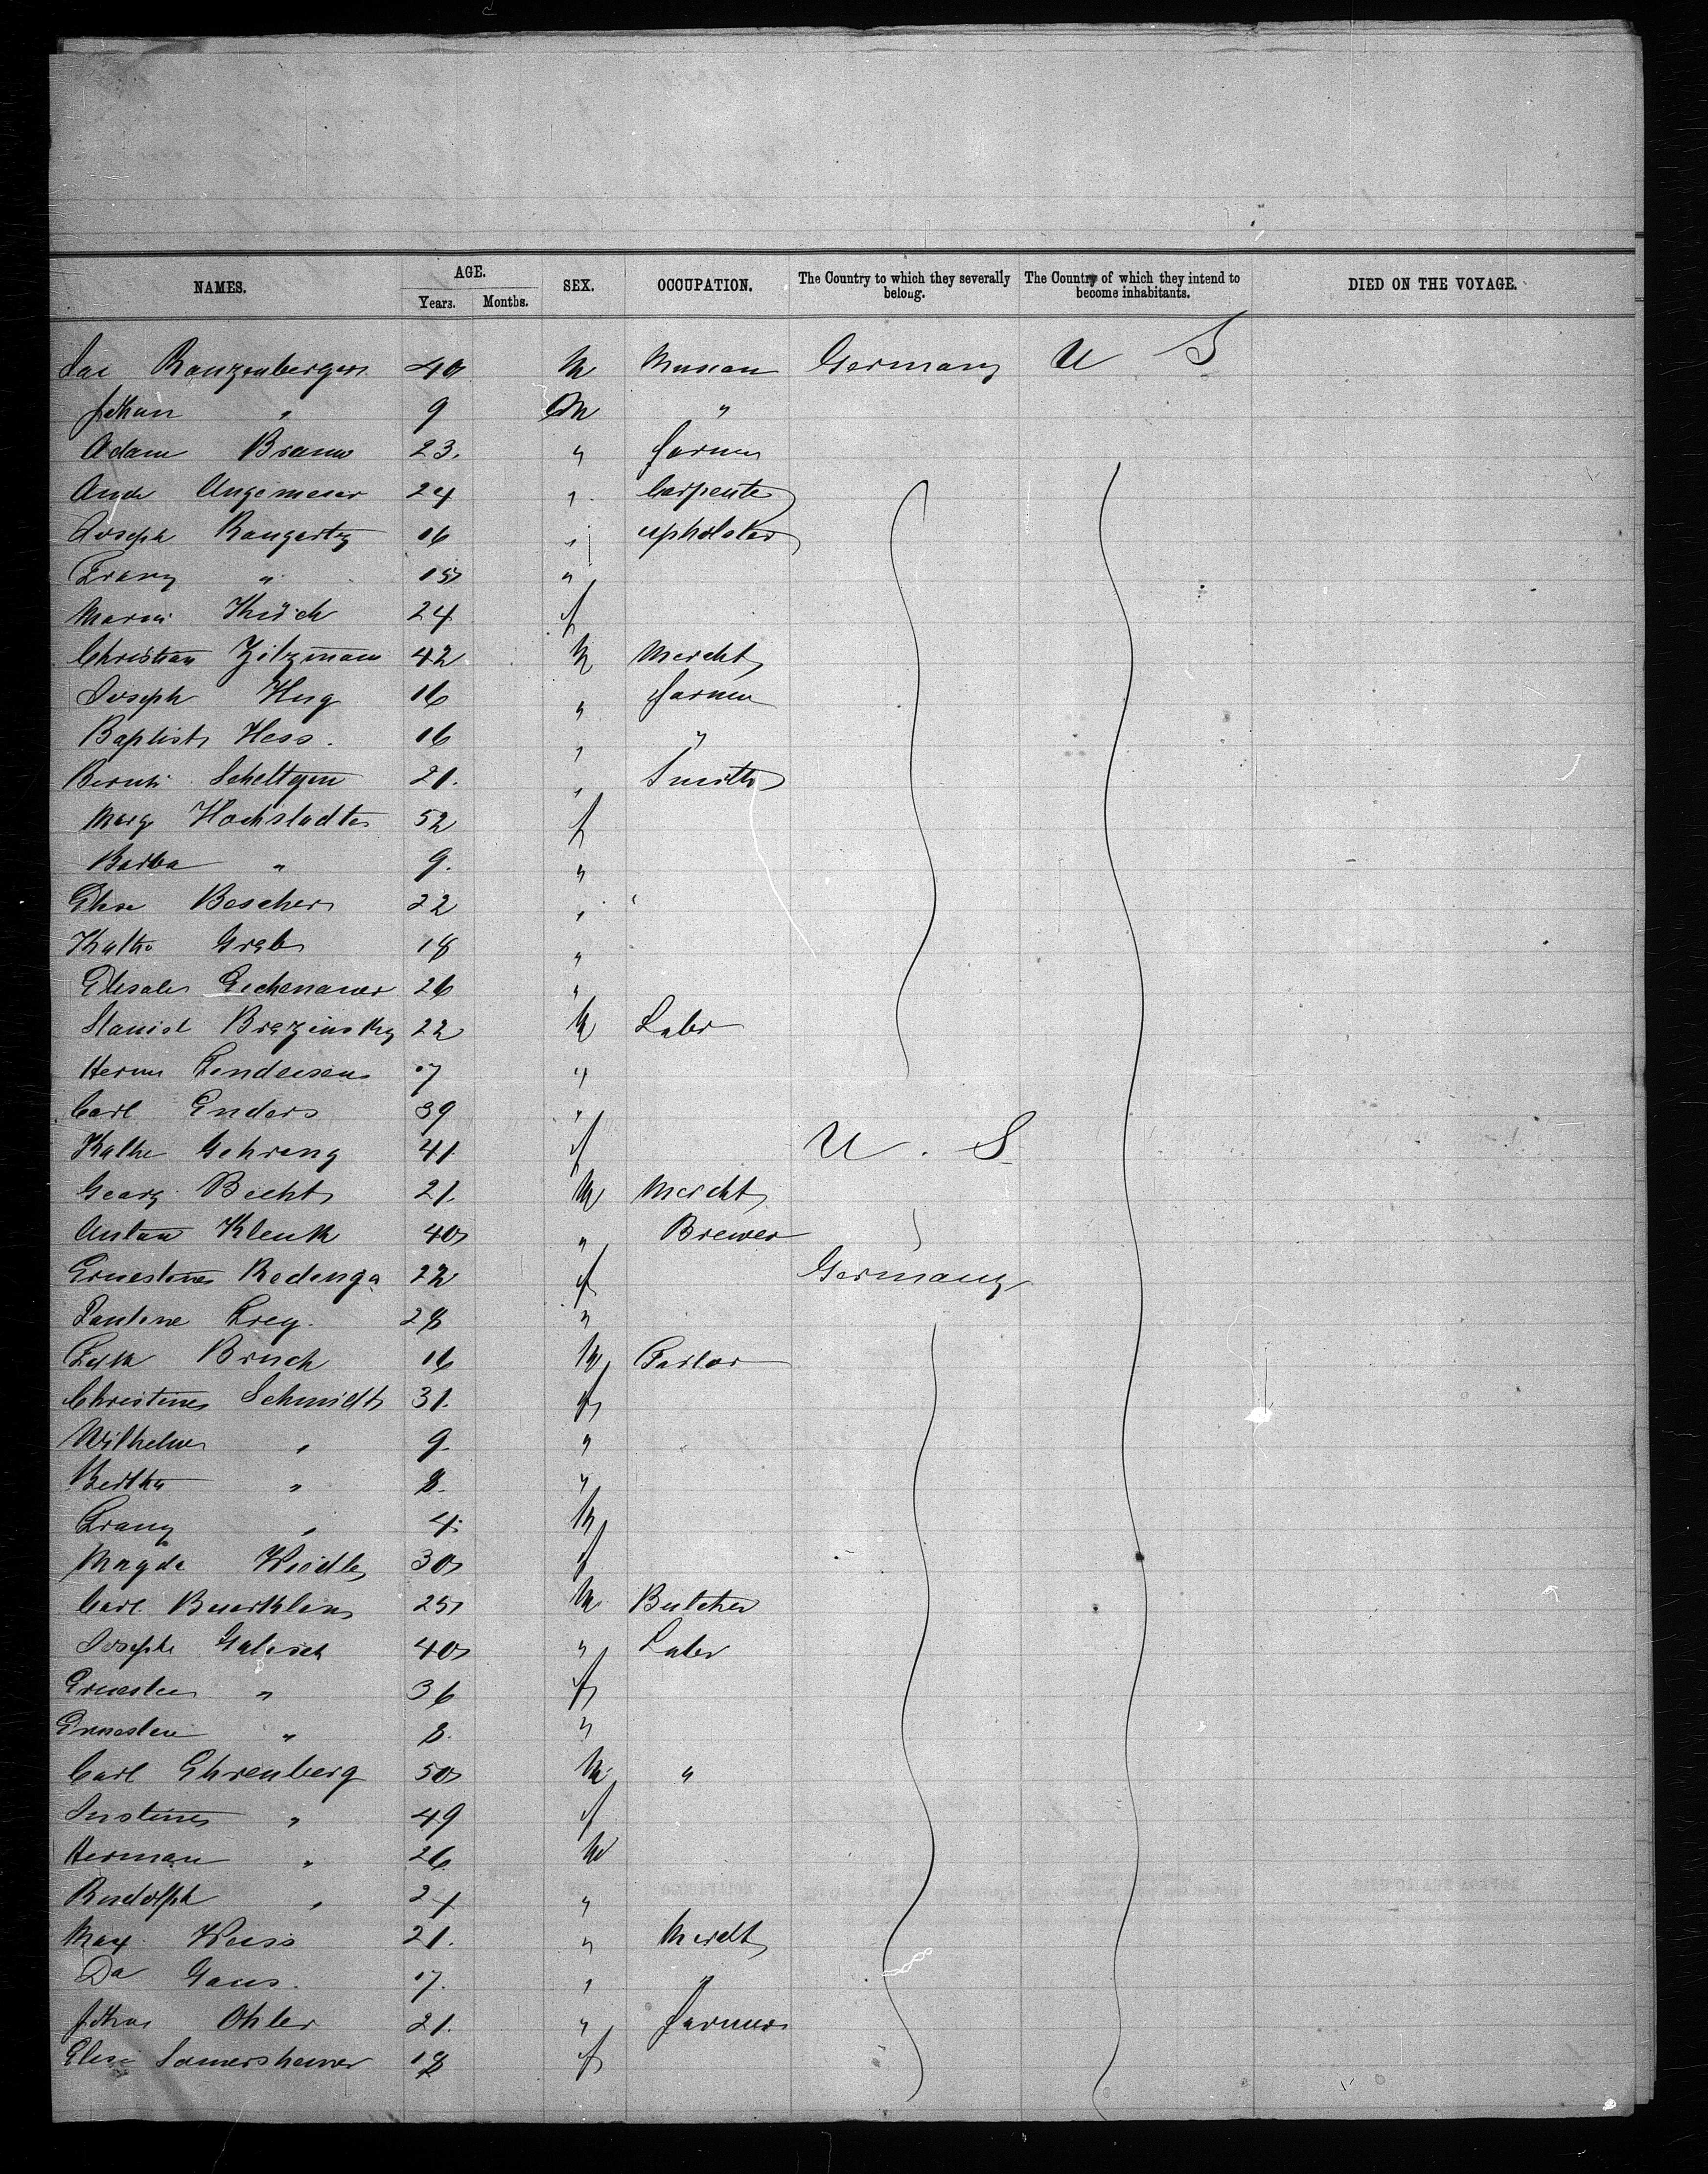 NAMES. AGE. Years. Months. SEX. OCCUPATION. The Country to which they severally belong. The Country of which they intend to become inhabitants. DIED ON THE VOYAGE.
Ranzenberger 40 M Germany U S
Johan " 9 M "
Adam Braun 23. " farmer
Andr 24 " Carpenter
Joseph Bangartz 16 " upholster
Franz " 15 "
24 f
Christian Zitzmann 42 M Mercht
Joseph Hug 16 " farmer
Baptist Hess. 16 " "
Scheltgen 21. " Smith
Marg Hochstadter 52 f
Barba " 9. "
Elise Bescher 22 "
Kath Grab 18 "
Elisab Eichenauer 26 "
Stanisl Brezinsky 22 M Labr
Herm 17 "
Carl Enders 39 "
Kathe Gehring 41 f U. S
Georg Becht 21. M Mercht
Anton Klenk 40 " Brewer
Ernestine Rodinga 22 f Germany
Pauline Frey. 28 "
Bruch 16 M Tailor
Christine Schmidt 31. f
Wilhelm " 9. "
Bertha " 8. "
Franz " 4. M
Magda 30 f
Carl 25 M Butcher
Joseph 40 " Labr
Ernestin " 36 f
Ernestin " 8. "
Carl Ehrenberg 50 M "
Justine " 49 f
Herman " 26 M
Rudolph " 24 "
Max Weiss 21. " Mercht
Da Gans. 17. " "
Johan Ohler 21. " farmer
Elise 18 f